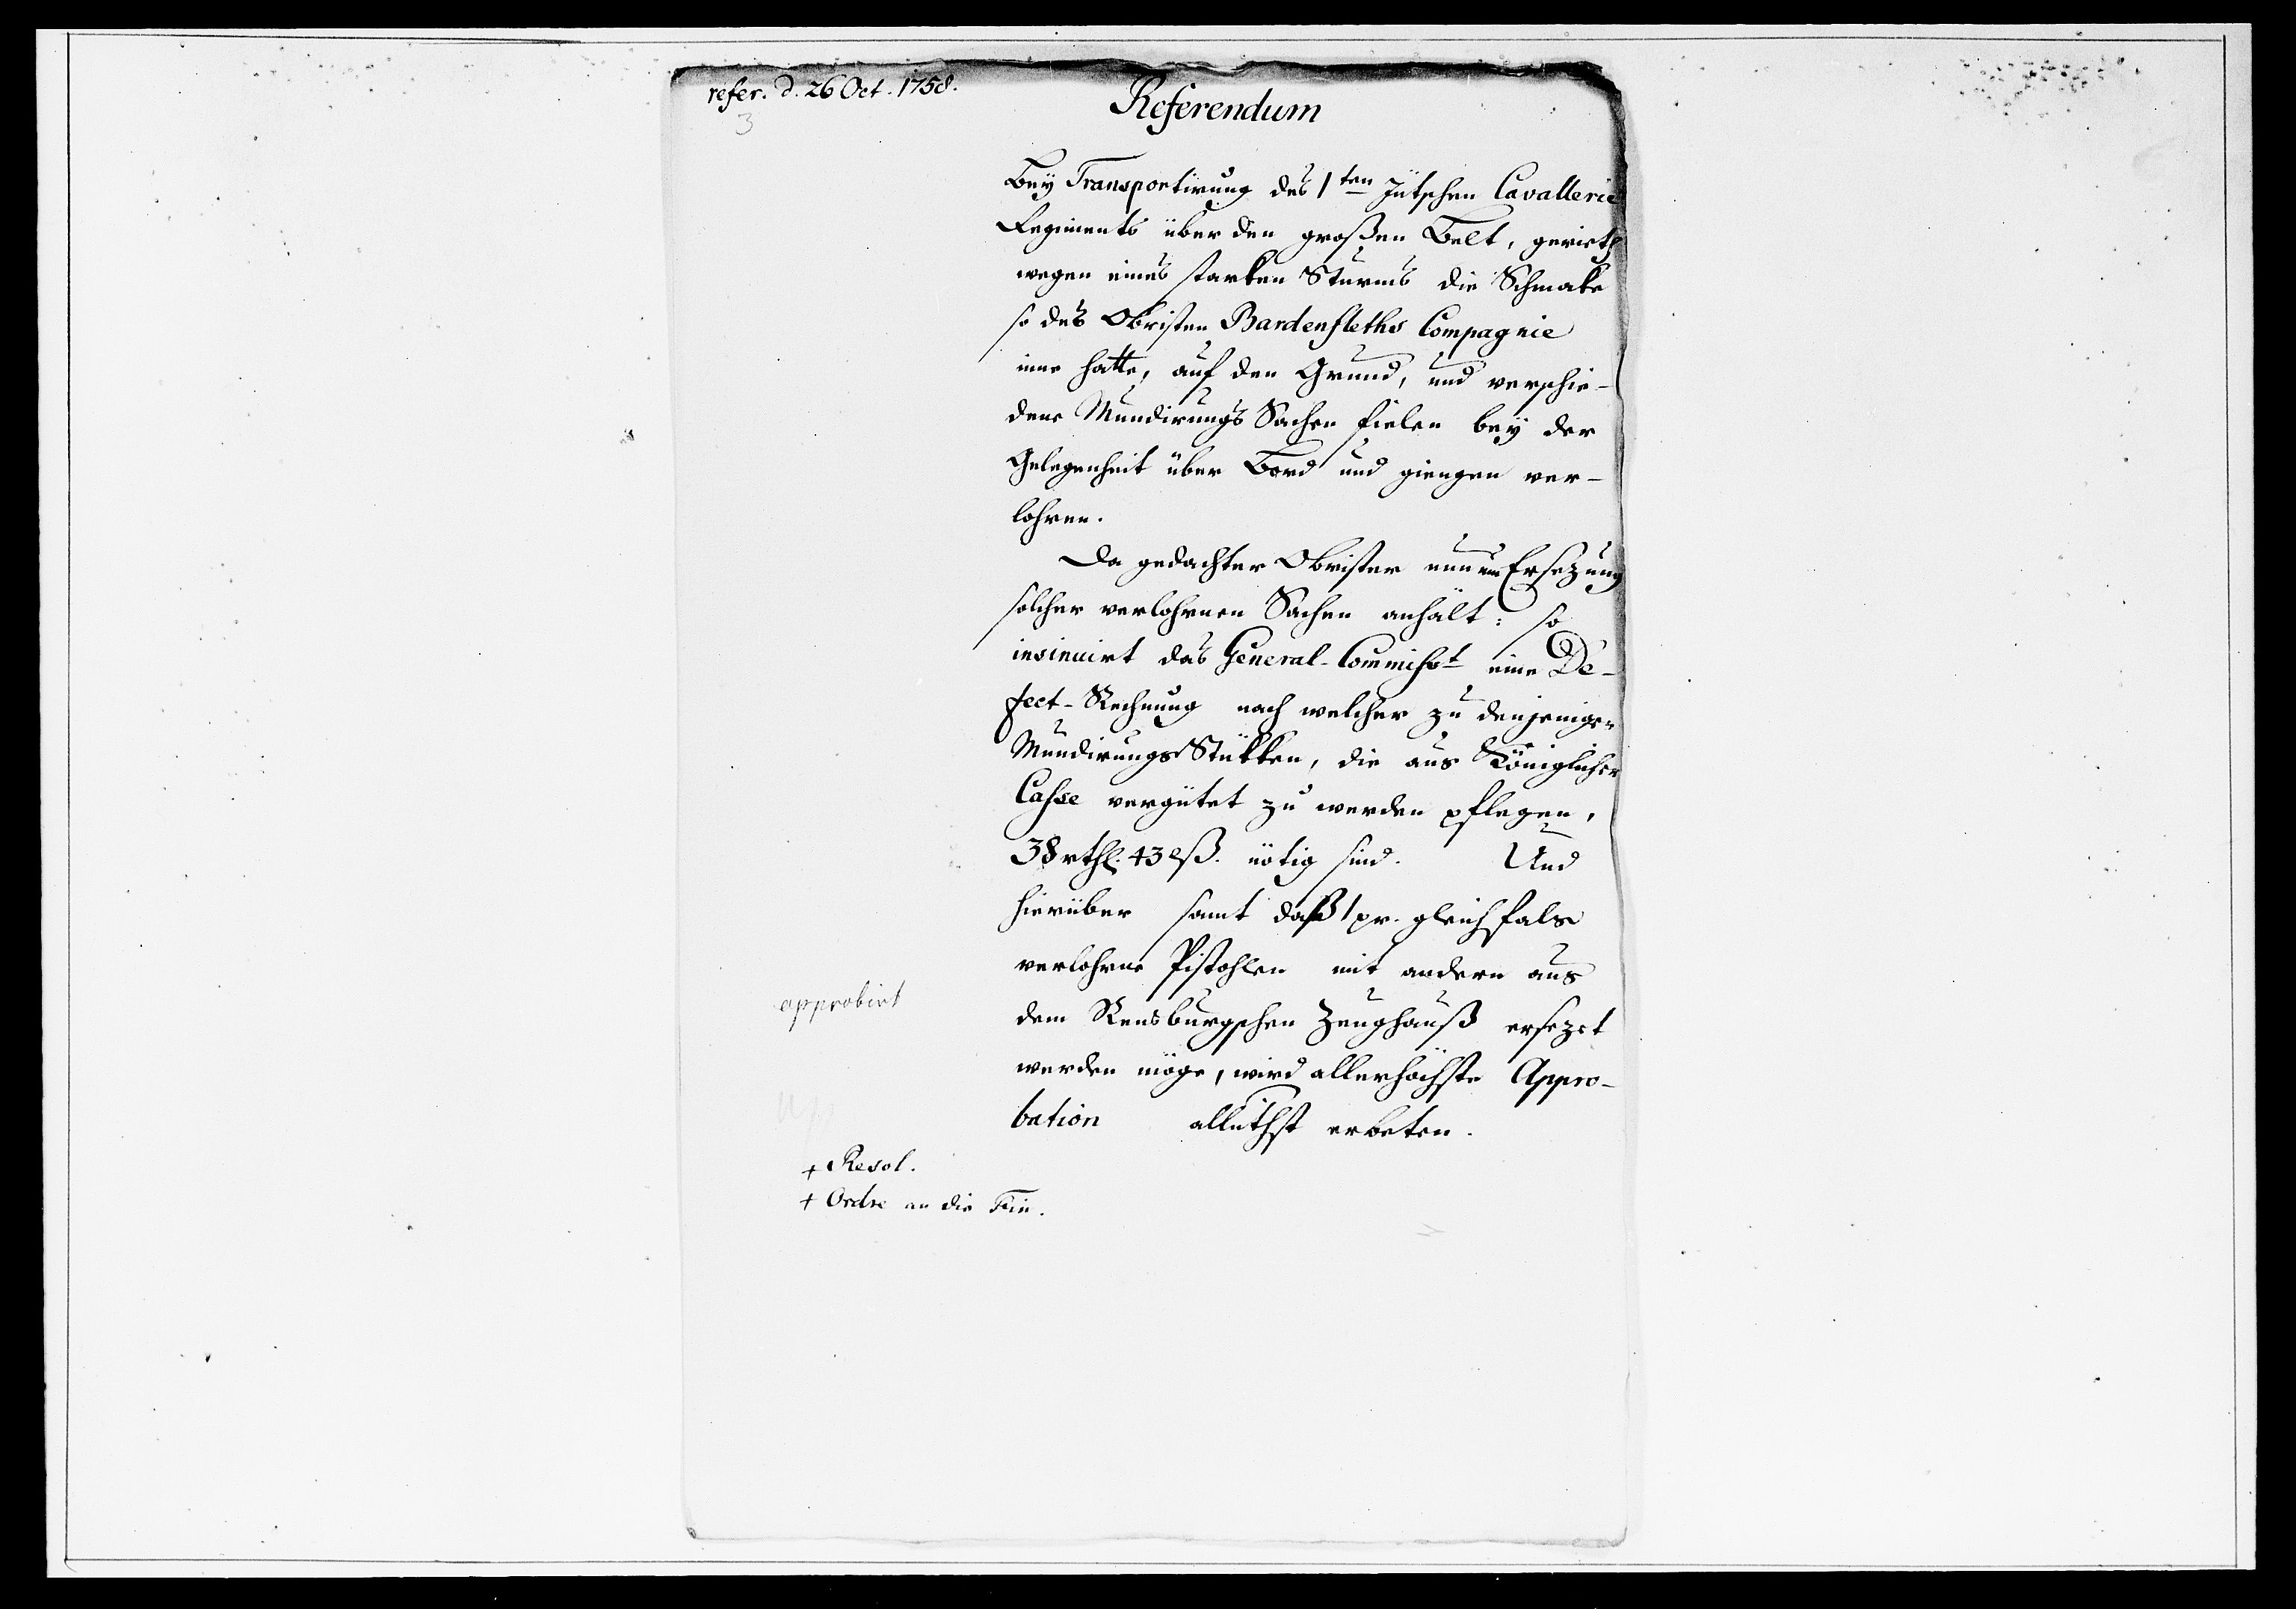 refer. d. 26 Oct. 1758.
3
Referendum
Bey Transportirung des 1ten Jütschen Cavallerie
Regiments über den großen Belt, gerieth
wegen eines starken Sturms die Schmake
so des Obristen Bardenfleths Compagnie
inne hatte, auf den Grund, und verschie-
dene Mundirungs Sachen fielen bey der
Gelegenheit über Bord und giengen ver-
lohren.
Da gedachter Obrister nun um Ersezung
solcher verlohrnen Sachen anhält: so
insinuirt das General-Commisst eine De-
fect-Rechnung nach welcher zu denjenigen
Mundirungs Stükken, die aus Königlicher
Casse vergütet zu werden pflegen,
38 rthl. 43 lß. nötig sind. Und
hierüber samt daß 1 pr. gleichfals
verlohrne Pistohlen mit andern aus
dem Rensburgschen Zeughauß ersezet
werden möge, wird allerhöchste Appro-
bation alluthst erbeten.
approbirt
+ Resol.
+ Ordre an die Fin.